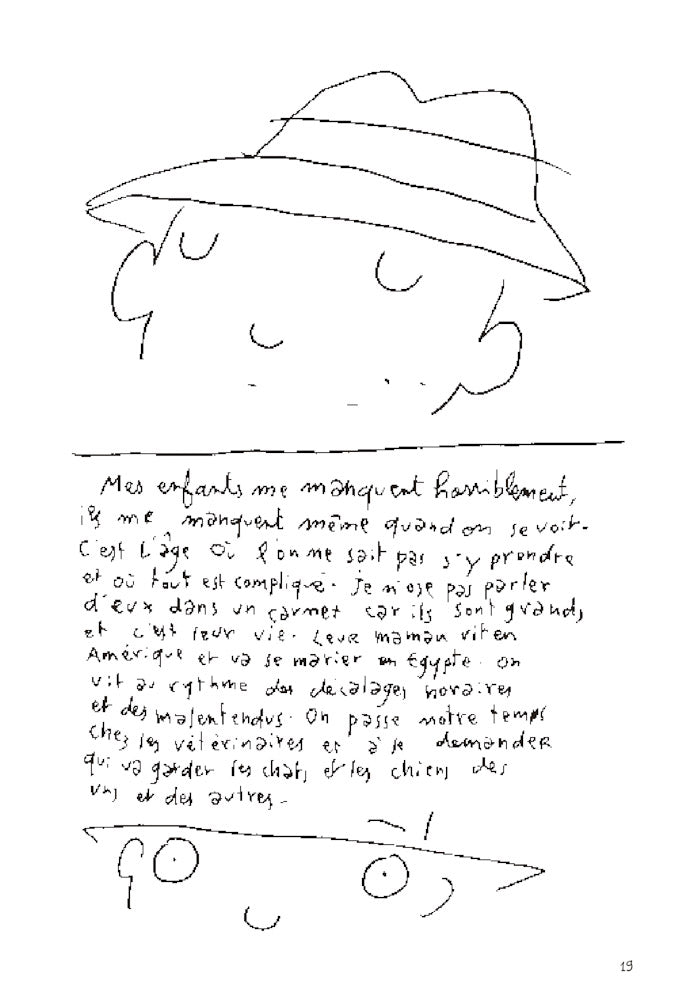 Mes enfants me manquent horriblement,
ils me manquent même quand on se voit.
C'est l'âge où l'on ne sait pas s'y prendre
et où tout est compliqué. Je n'ose pas parler
d'eux dans un carnet car ils sont grands
et c'est leur vie. Leur maman vit en
Amérique et va se marier en Égypte. On
vit au rythme des décalages horaires
et des malentendus. On passe notre temps
chez les vétérinaires et à se demander
qui va garder les chats et les chiens des
uns et des autres.
19